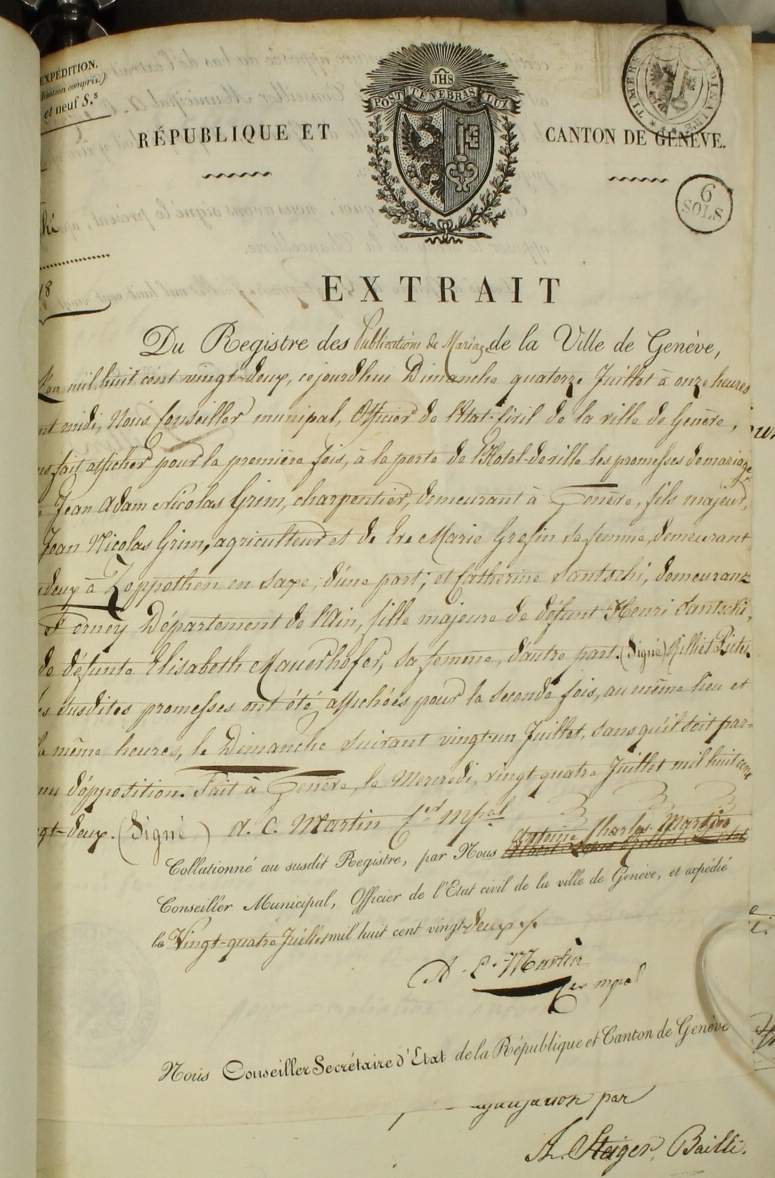 XPÉDITION.
et neuf S.s
JHS
POST TENEBRAS LUX
RÉPUBLIQUE ET
CANTON DE GENÈVE.
6
SOLS
18
EXTRAIT
Du Registre des Publications de Mariage de la Ville de Genève,
L'an mil huit cent vingt-deux, cejourdhui Dimanche quatorze Juillet à onze heures
nt midi, Nous Conseiller municipal, Officier de l'Etat-Civil de la ville de Genève,
ns fait afficher pour la première fois, à la porte de l'Hotel-de-ville les promesses de mariage
Jean Adam Nicolas Grim, charpentier, demeurant à Genève, fils majeur,
Jean Nicolas Grim, agriculteur et de Eve Marie Grefin sa femme, demeurant
deux à Zopprothen en saxe, d'une part; et Catherine Santschi, demeurant
Ferney Département de l'Ain, fille majeure de défunt Henri Santschi,
de défunte Elisabeth Mauerhofer, sa femme, d'autre part. (Signé) Rilliet Pictet
es susdites promesses ont été affichées pour la seconde fois, au même lieu et
même heures, le Dimanche suivant vingt-un Juillet, sans qu'il soit par-
nu d'opposition. Fait à Genève, le Mercredi, vingt-quatre Juillet mil huit cent
gt-deux. (Signé) A. C. Martin Cer mpal
Collationné au susdit Registre, par Nous Antoine Charles Martin
Conseiller Municipal, Officier de l'Etat civil de la ville de Genève, et expédié
le Vingt-quatre Juillet mil huit cent vingt-deux
A. C. Martin
Cer mpal
Nous Conseiller Secrétaire d'Etat de la République et Canton de Genève
par
Steiger, Bailli.